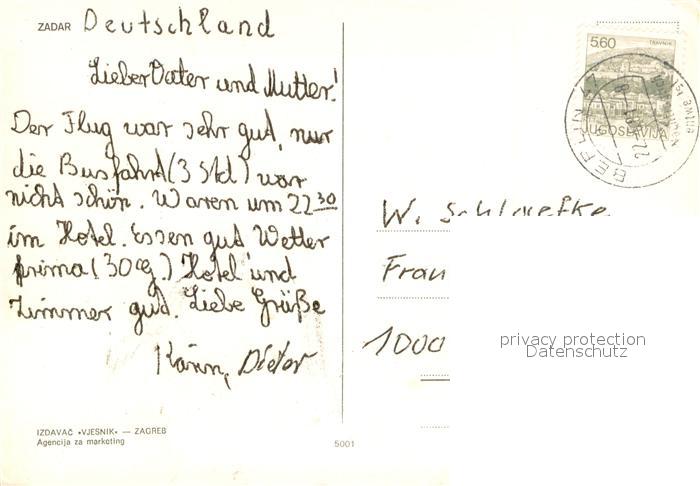 ZADAR Deutschland
Lieber Vater und Mutter!
Der Flug war sehr gut, nur
die Busfahrt (3 Std) war
nicht schön. Waren um 22 30
im Hotel. Essen gut Wetter
prima (30 Cg.) Hotel und
Zimmer gut. Liebe Grüße
Karin, Dieter
IZDAVAČ «VJESNIK» — ZAGREB
Agencija za marketing
5001
5.60
TRAVNIK
JUGOSLAVIJA
BERLIN
W.
Fran
1000
privacy protection
Datenschutz